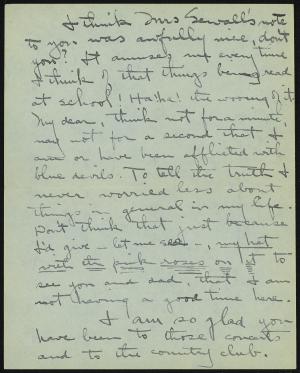 I think Mrs Sewall's note
to you was awfully nice, don't
you? It amuses me every time
I think of that things being read
at school! Ha! ha! the wooing of it.
My dear, think not for a minute,
nay not for a second that I
am or have been afflicted with
blue devils. To tell the truth I
never worried less about
things in general in my life.
Don't think that just because
I'd give - let me see -, my hat
with the pink roses on it to
see you and dad, that I am
not having a good time here.
I am so glad you
have been to those concerts
and to the country club.